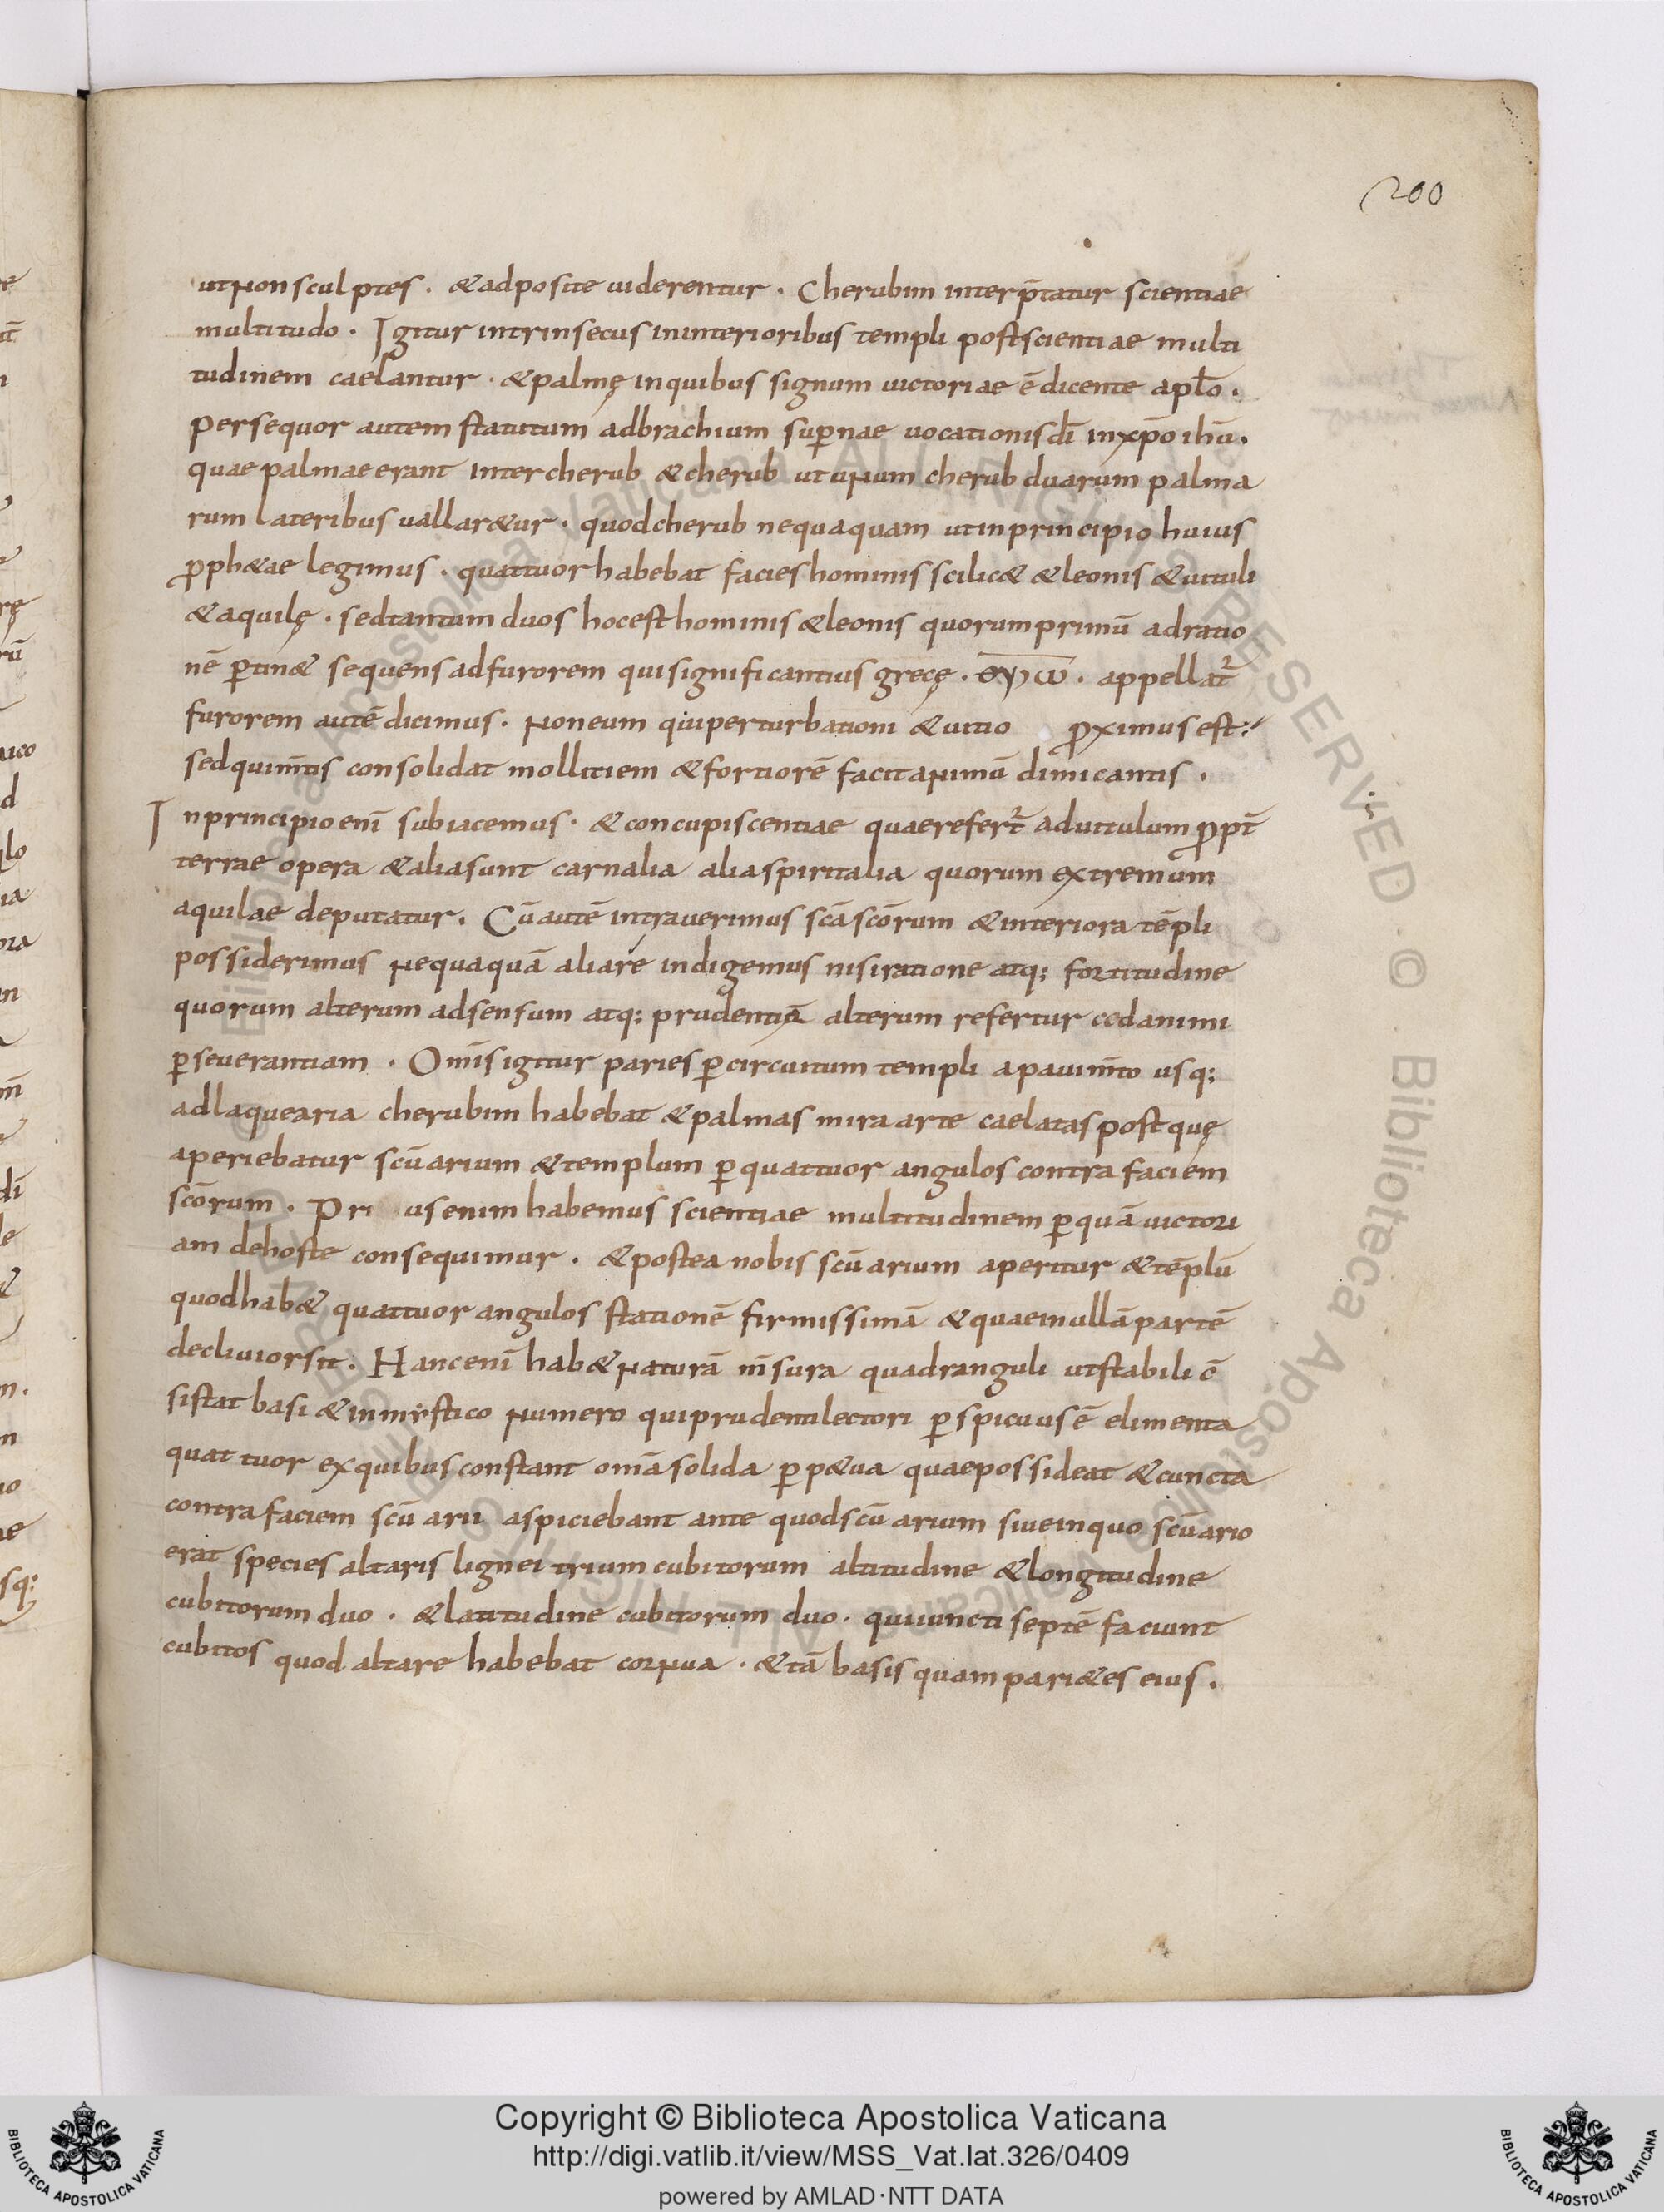 200
ut non sculptes . & adposite uiderentur . Cherubim interp̄tatur scientiae
multitudo . Igitur intrinsecus ininterioribus templi post scientiae multi
tudinem caelantur . & palmę inquibus signum uictoriae ē dicente apl̄o .
persequor autem statutum adbrachium sup̄nae uocationis dī inxp̄o ihū .
quae palmae erant inter cherub & cherub ut unum cherub duarum palma
rum lateribus uallar&ur . quod cherub nequaquam ut in principio huius
ꝓph&ae legimus . quattuor habebat facies hominis scilic& & leonis & uituli
& aquilę . sed tantum duos hoc est hominis & leonis quorum primū adratio
nē ꝑtin& sequens adfurorem qui significantius grecę . appellat̄
furorem autē dicimus . non eum qui perturbationi & uitio ꝓximus est :
sed qui m̄tis consolidat mollitiem & fortiorē facit animū dimicantis .
In principio enī subiacemus . & concupiscentiae quae refert̄ aduitulum ꝓpt̄
terrae opera & alia sunt carnalia alia spiritalia quorum extremum
aquilae deputatur . Cū autē intrauerimus scā scōrum & interiora tēpli
possiderimus nequaquā alia rē indigemus nisi ratione atq; fortitudine
quorum alterum adsensum atq; prudentiā alterum refertur ad animi
ꝑseuerantiam . Om̄is igitur paries ꝑ circuitum templi a pauim̄to usq;
adlaquearia cherubim habebat & palmas mira arte caelatas post quę
aperiebatur scū arium & templum ꝑ quattuor angulos contra faciem
scōrum . Pri us enim habemus scientiae multitudinem ꝑ quā uictori
am de hoste consequimur . & postea nobis scū arium aperitur & tēplū
quod hab& quattuor angulos stationē firmissimā & quae in nullā partē
decliuior sit . Hanc enī hab& naturā m̄sura quadranguli ut stabili c̄
sistat basi & in mystico numero qui prudenti lectori ꝑspicuus ē elimenta
quattuor ex quibus constant om̄a solida ꝑp&ua quae possideat & cuncta
contra faciem scū arii aspiciebant ante quod scū arium siue in quo scū ario
erat species altaris lignei trium cubitorum altitudine & longitudine
cubitorum duo . & latitudine cubitorum duo . qui iuncti septē faciunt
cubitos quod altare habebat cornua . & tā basis quam pari&es eius .
Copyright © Biblioteca Apostolica Vaticana
http://digi.vatlib.it/view/MSS_Vat.lat.326/0409
powered by AMLAD·NTT DATA